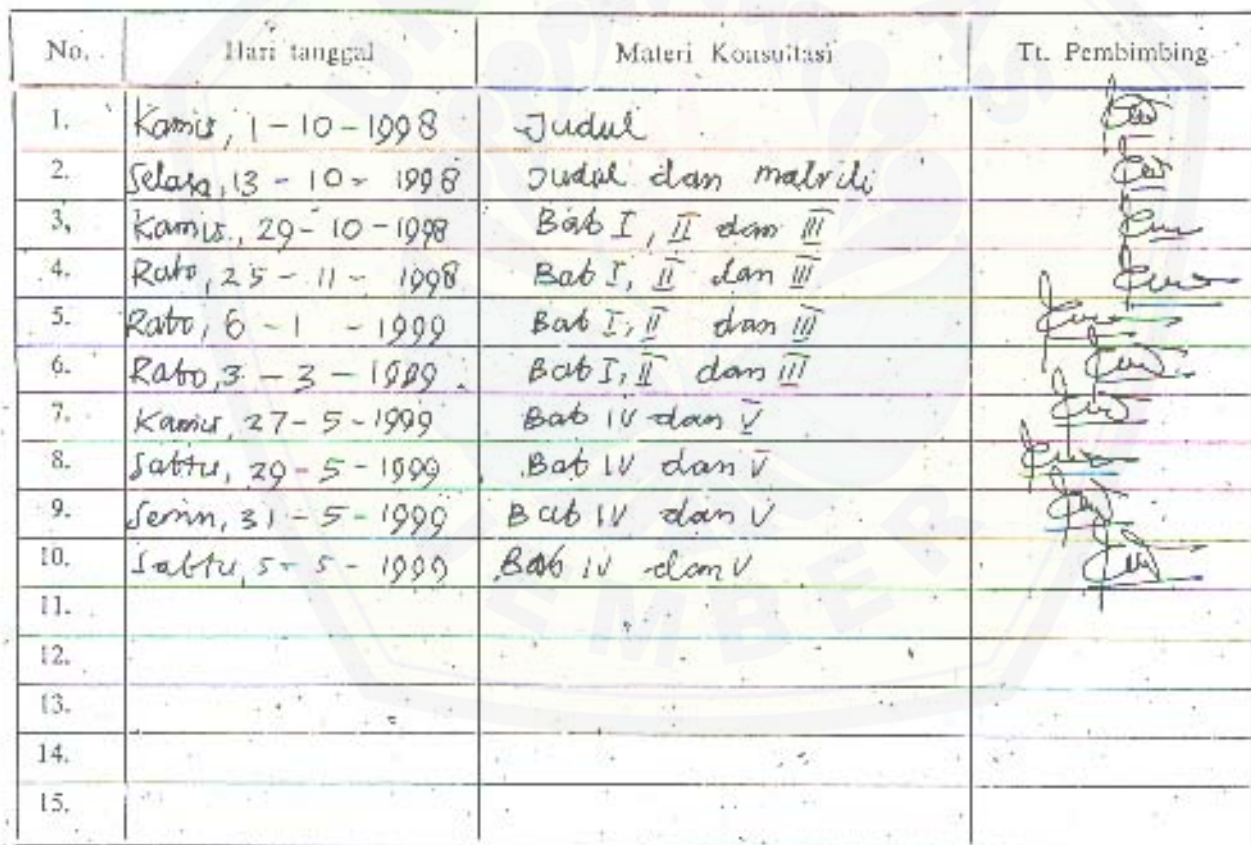 No. Hari tanggal Materi Konsultasi Tt. Pembimbing
1. Kamis, 1 - 10 - 1998 Judul
2. Selasa, 13 - 10 - 1998 Judul dan matrik
3. Kamis, 29 - 10 - 1998 Bab I, II dan III
4. Rabo, 25 - 11 - 1998 Bab I, II dan III
5. Rabo, 6 - 1 - 1999 Bab I, II dan III
6. Rabo, 3 - 3 - 1999 Bab I, II dan III
7. Kamis, 27 - 5 - 1999 Bab IV dan V
8. Sabtu, 29 - 5 - 1999 Bab IV dan V
9. Senin, 31 - 5 - 1999 Bab IV dan V
10. Sabtu, 5 - 5 - 1999 Bab IV dan V
11.
12.
13.
14.
15.